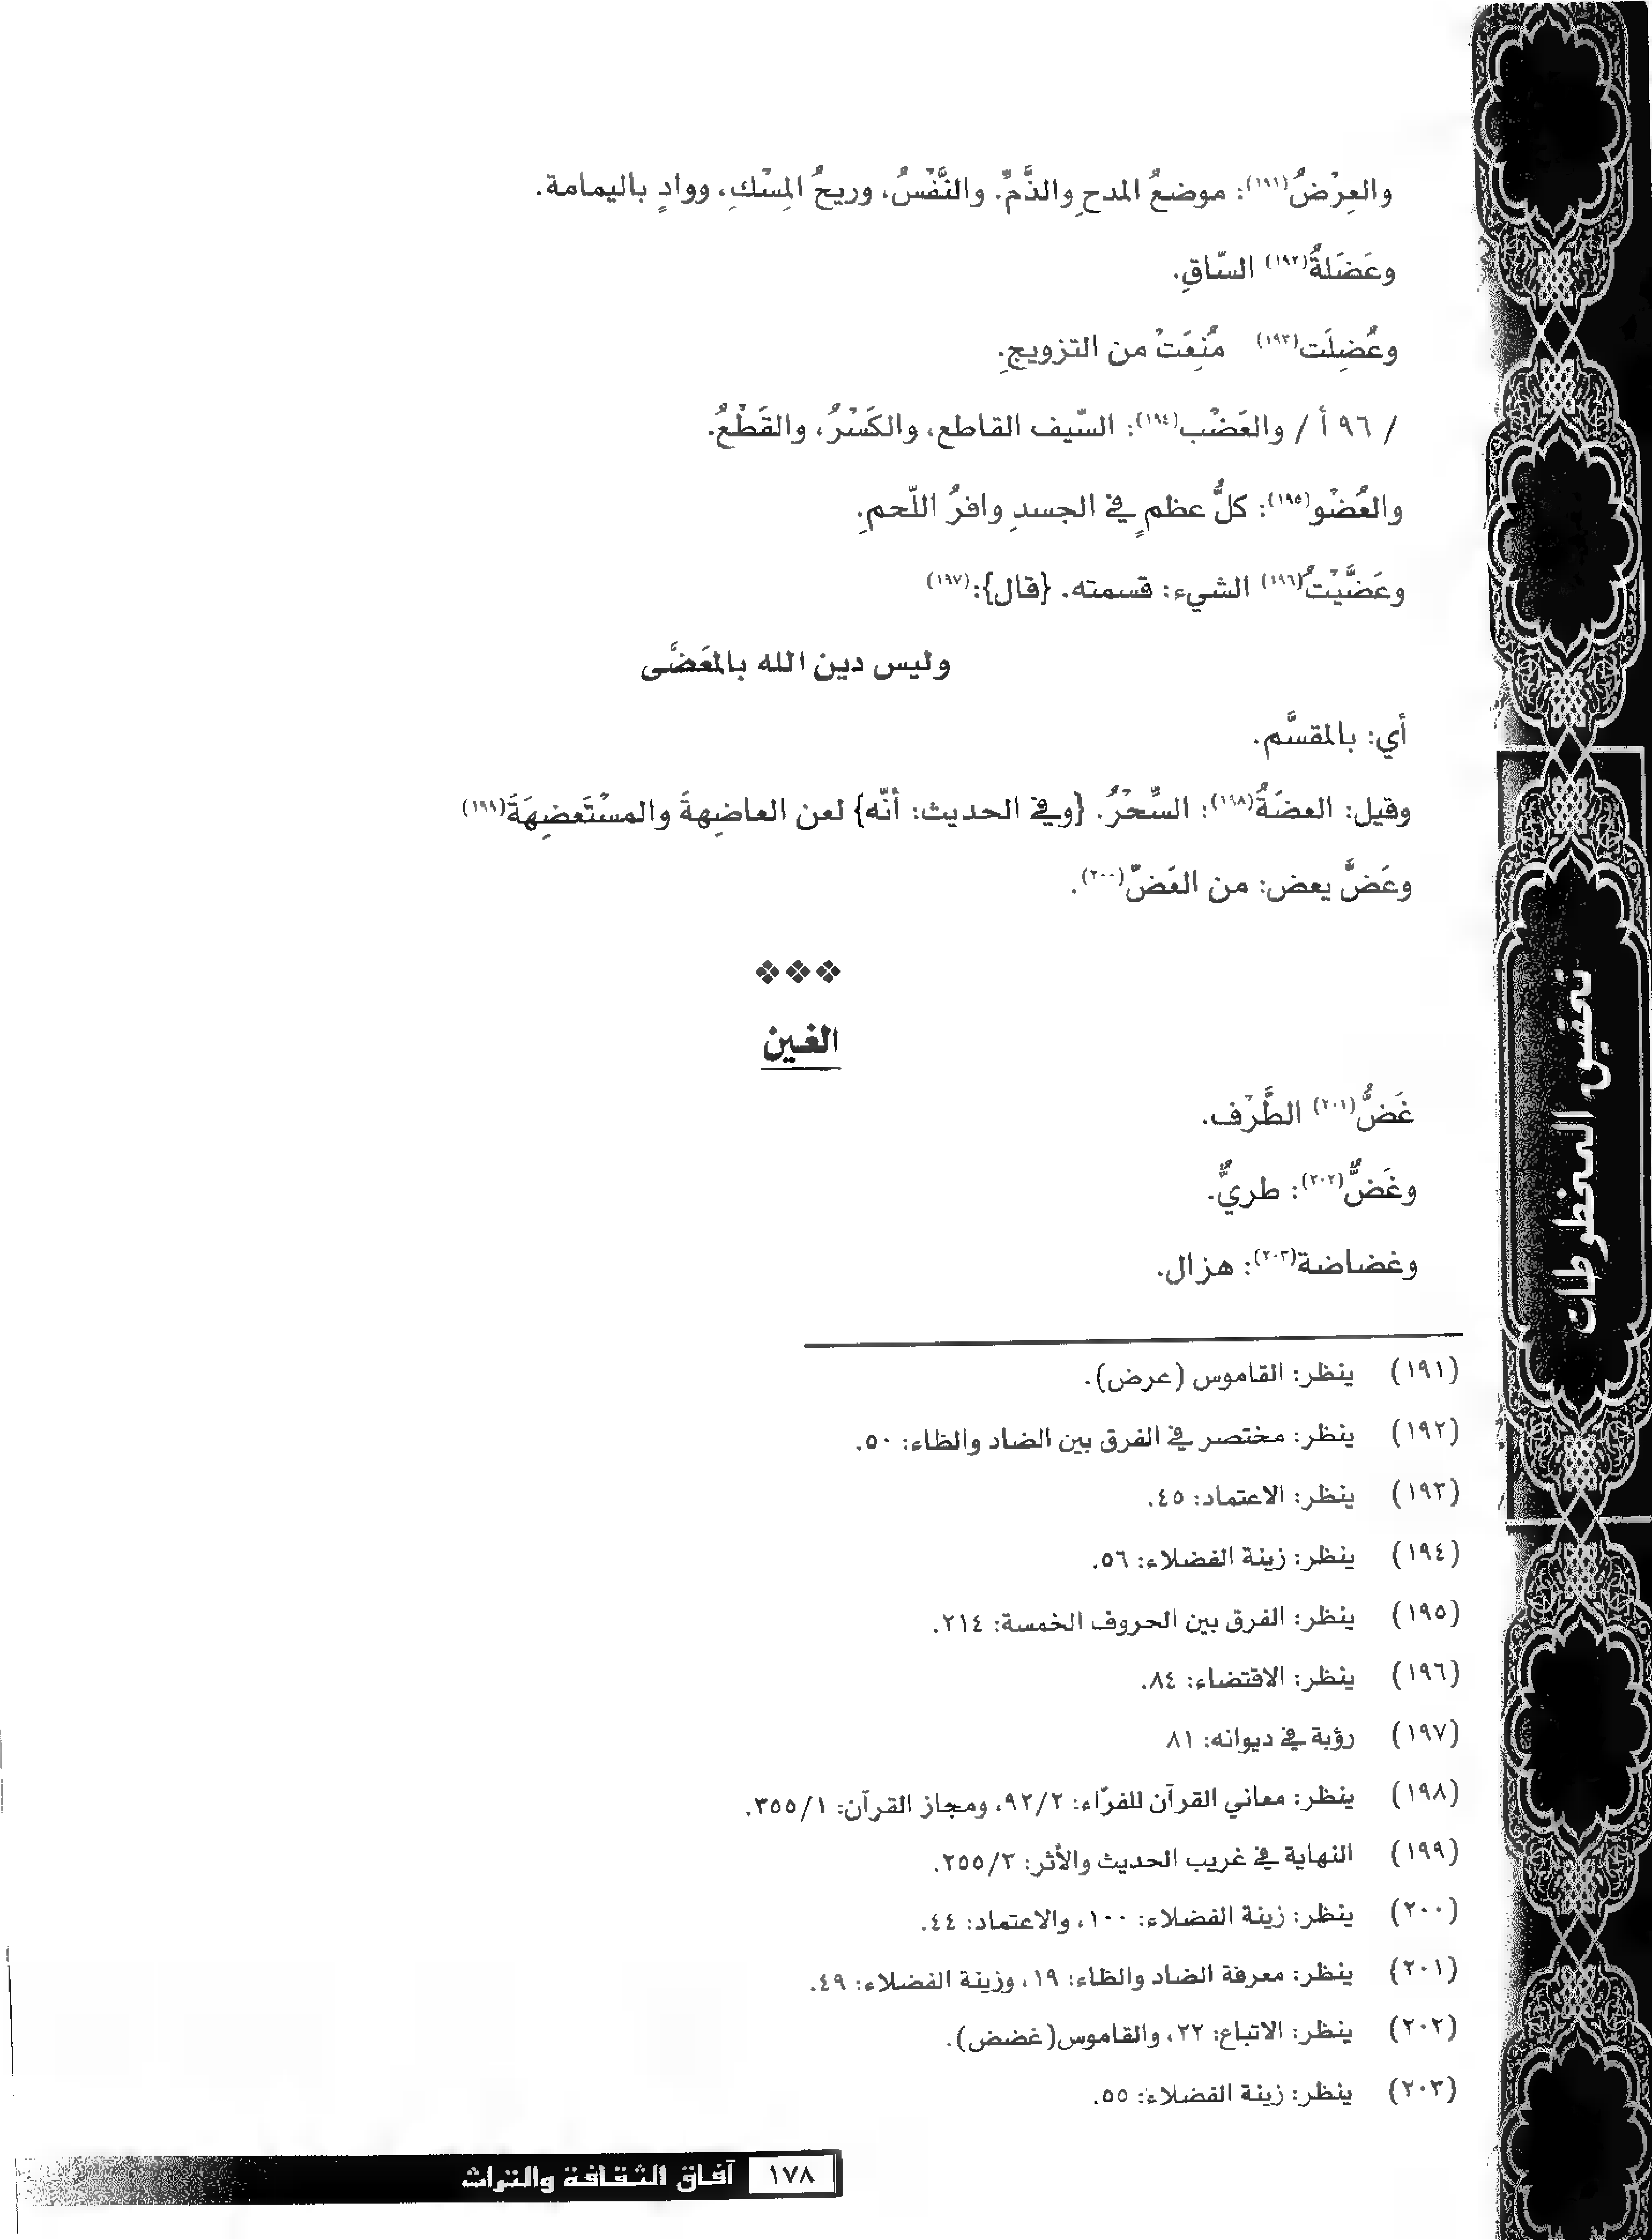 والعِرْضُ(١٩١): موضعُ المدحِ والذَّمِّ. والنَّفْسُ، وريحُ المِسْكِ، ووادٍ باليمامة.
وعَضَلةُ(١٩٢) السّاقِ.
وعُضِلَت(١٩٣) مُنِعَتْ من التزويجِ.
/ ٩٦ أ / والعَضْب(١٩٤): السّيف القاطع، والكَسْرُ، والقَطْعُ.
والعُضْو(١٩٥): كلُّ عظمٍ في الجسدِ وافرُ اللّحمِ.
وعَضَّيْتُ(١٩٦) الشيء: قسمته. {قال}:(١٩٧)
وليس دين الله بالمعَضَّى
أي: بالمقسَّم.
وقيل: العضَةُ(١٩٨): السِّحْرُ. {وفي الحديث: أنّه} لعن العاضِهةَ والمسْتَعضِهَةَ(١٩٩)
وعَضَّ يعض: من العَضّ(٢٠٠).
الغين
غَضُّ(٢٠١) الطَّرْف.
وغَضٌّ(٢٠٢): طريٌّ.
وغضاضة(٢٠٣): هزال.
(١٩١) ينظر: القاموس (عرض).
(١٩٢) ينظر: مختصر في الفرق بين الضاد والظاء: ٥٠.
(١٩٣) ينظر: الاعتماد: ٤٥.
(١٩٤) ينظر: زينة الفضلاء: ٥٦.
(١٩٥) ينظر: الفرق بين الحروف الخمسة: ٢١٤.
(١٩٦) ينظر: الاقتضاء: ٨٤.
(١٩٧) رؤبة في ديوانه: ٨١
(١٩٨) ينظر: معاني القرآن للفرّاء: ٩٢/٢، ومجاز القرآن: ٣٥٥/١.
(١٩٩) النهاية في غريب الحديث والأثر: ٢٥٥/٣.
(٢٠٠) ينظر: زينة الفضلاء: ١٠٠، والاعتماد: ٤٤.
(٢٠١) ينظر: معرفة الضاد والظاء: ١٩، وزينة الفضلاء: ٤٩.
(٢٠٢) ينظر: الاتباع: ٢٢، والقاموس(غضض).
(٢٠٣) ينظر: زينة الفضلاء: ٥٥.
١٧٨ آفاق الثقافة والتراث
تحقيق المخطوطات